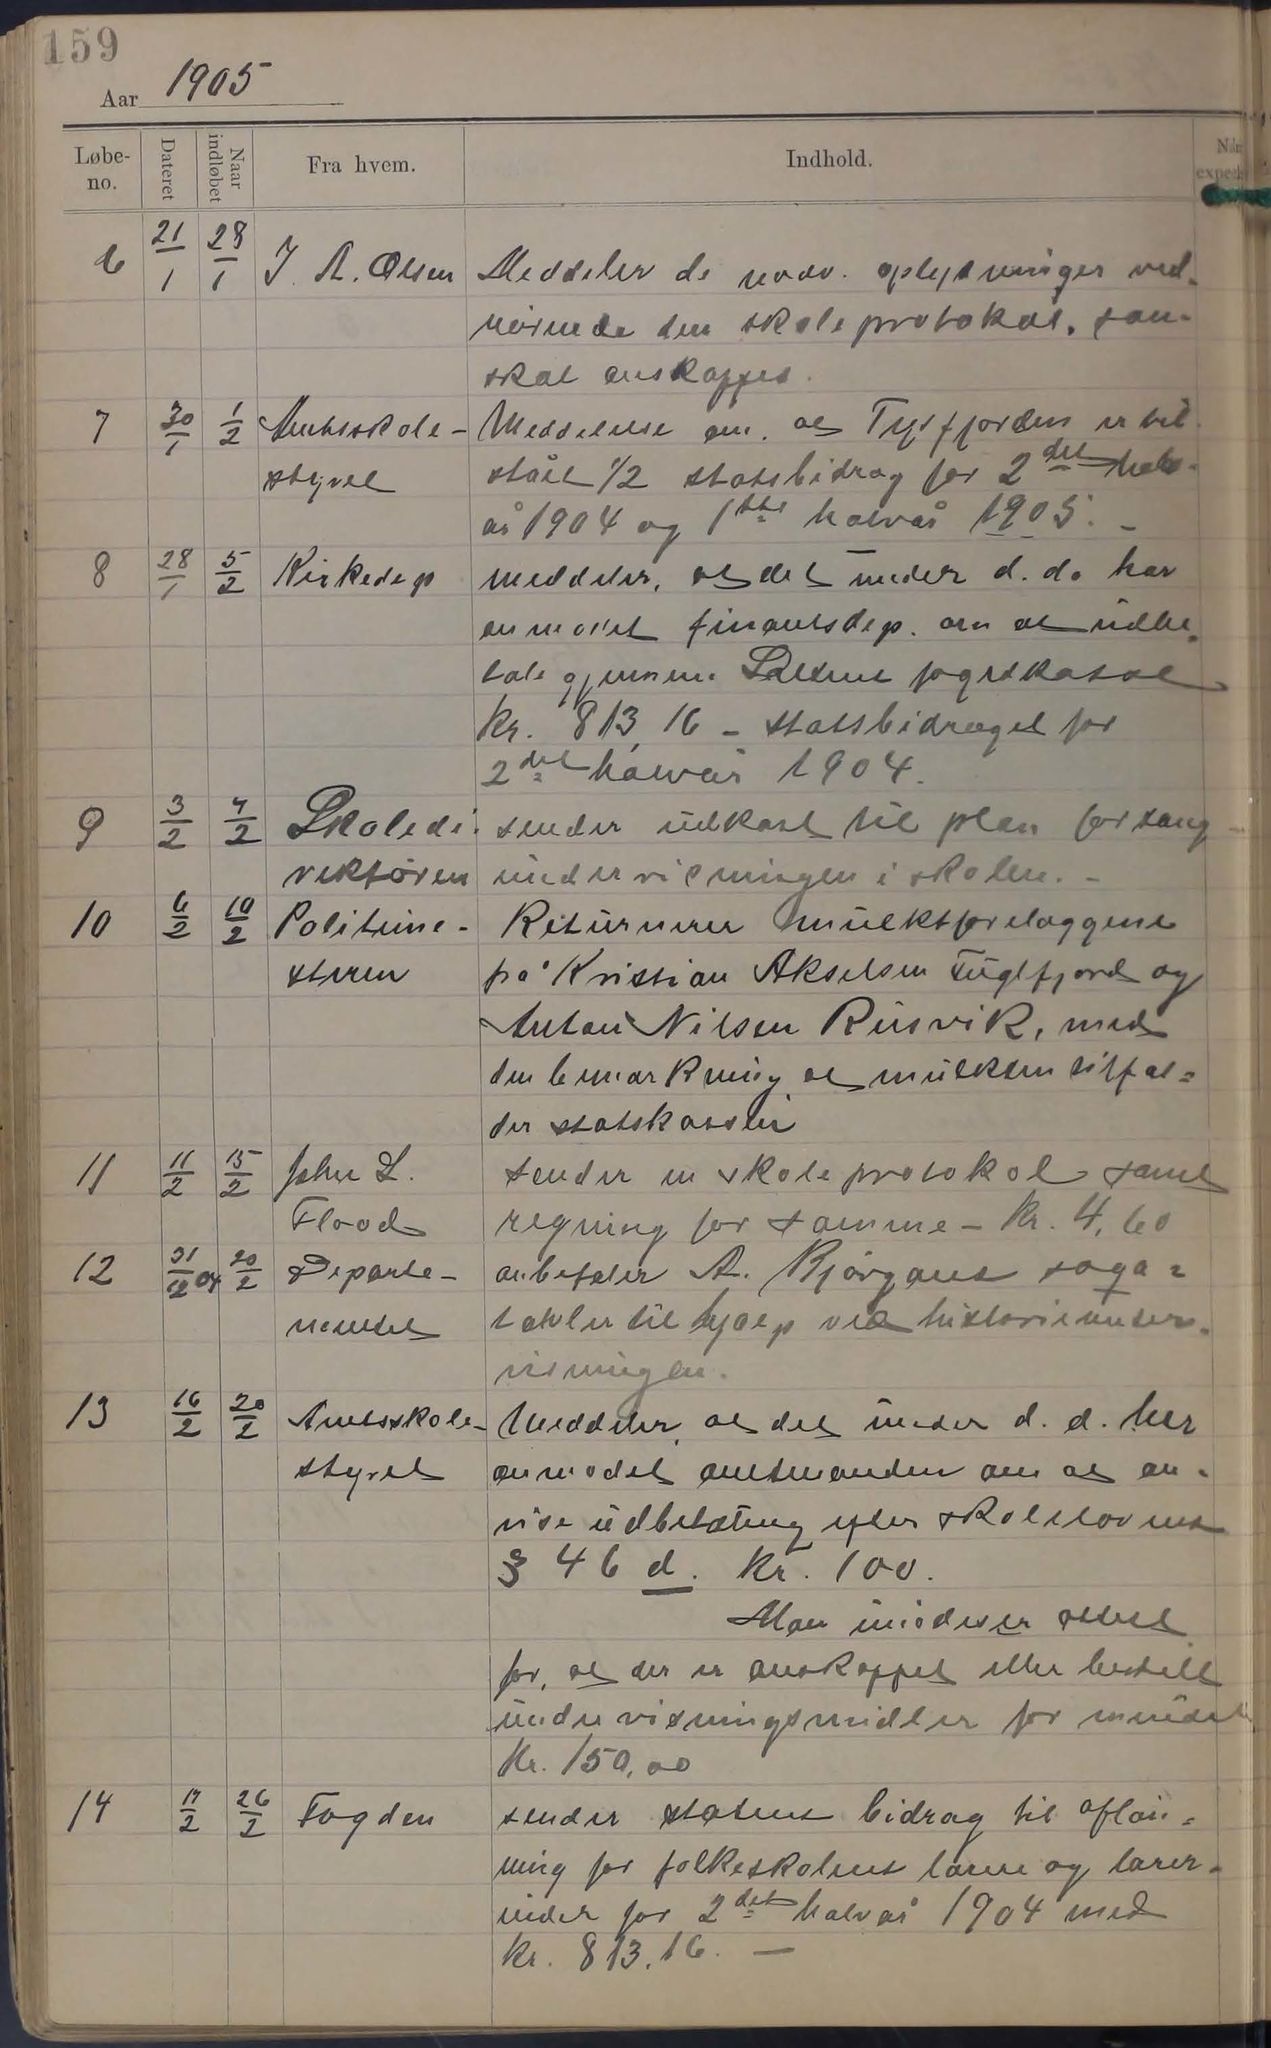 159
Aar 1905
Løbe-no. Dateret Naar indløbet Fra hvem. Indhold.
6 21/1 28/1 J. A. Olsen Meddeler de nødv. oplysninger ved-
rørende den skoleprotokol, som
skal anskaffes.
7 30/1 1/2 Amtsskole- Meddelelse om, at Tysfjorden er til-
styret stået 1/2 statsbidrag for 2det halv-
år 1904 og 1ste halvår 1905. -
8 28/1 5/2 Kirkedep meddeler, at det under d. do har
anmodet finantsdep. om at udbe-
tale gjennem Saltens fogedkasse
Kr. 813,16 - statsbidraget for
2det halvår 1904.
9 3/2 7/2 Skoledi- sender udkast til plan for sang-
rektøren undervisningen i skolen. -
10 6/2 10/2 Politime- Returnerer mulktforelæggene
steren på Kristian Akselsen Fuglfjord og
Anton Nilsen Rusvik, med
den bemærkning at mulkten tilfal-
der statskassen
11 11/2 15/2 John L. sender en skoleprotokol samt
Flood regning for samme - Kr. 4,60
12 31/12 04 20/2 Departe- anbefaler A. Bjørgans saga-
mentet tavler til hjælp ved historieunder-
visningen.
13 16/2 20/2 Amtsskole- Meddeler, at det under d. d. har
styret anmodet amtmanden om at an-
vise udbetaling efter skolelovens
§ 46 d. Kr. 100.
Man imødeser attest
for, at der er anskaffet eller bestilt
undervisningsmidler for mindst
Kr. 150,00
14 17/2 26/2 Fogden sender statens bidrag til afløn-
ning for folkeskolens lærere og lærer-
inder for 2det halvår 1904 med
Kr. 813.16. -